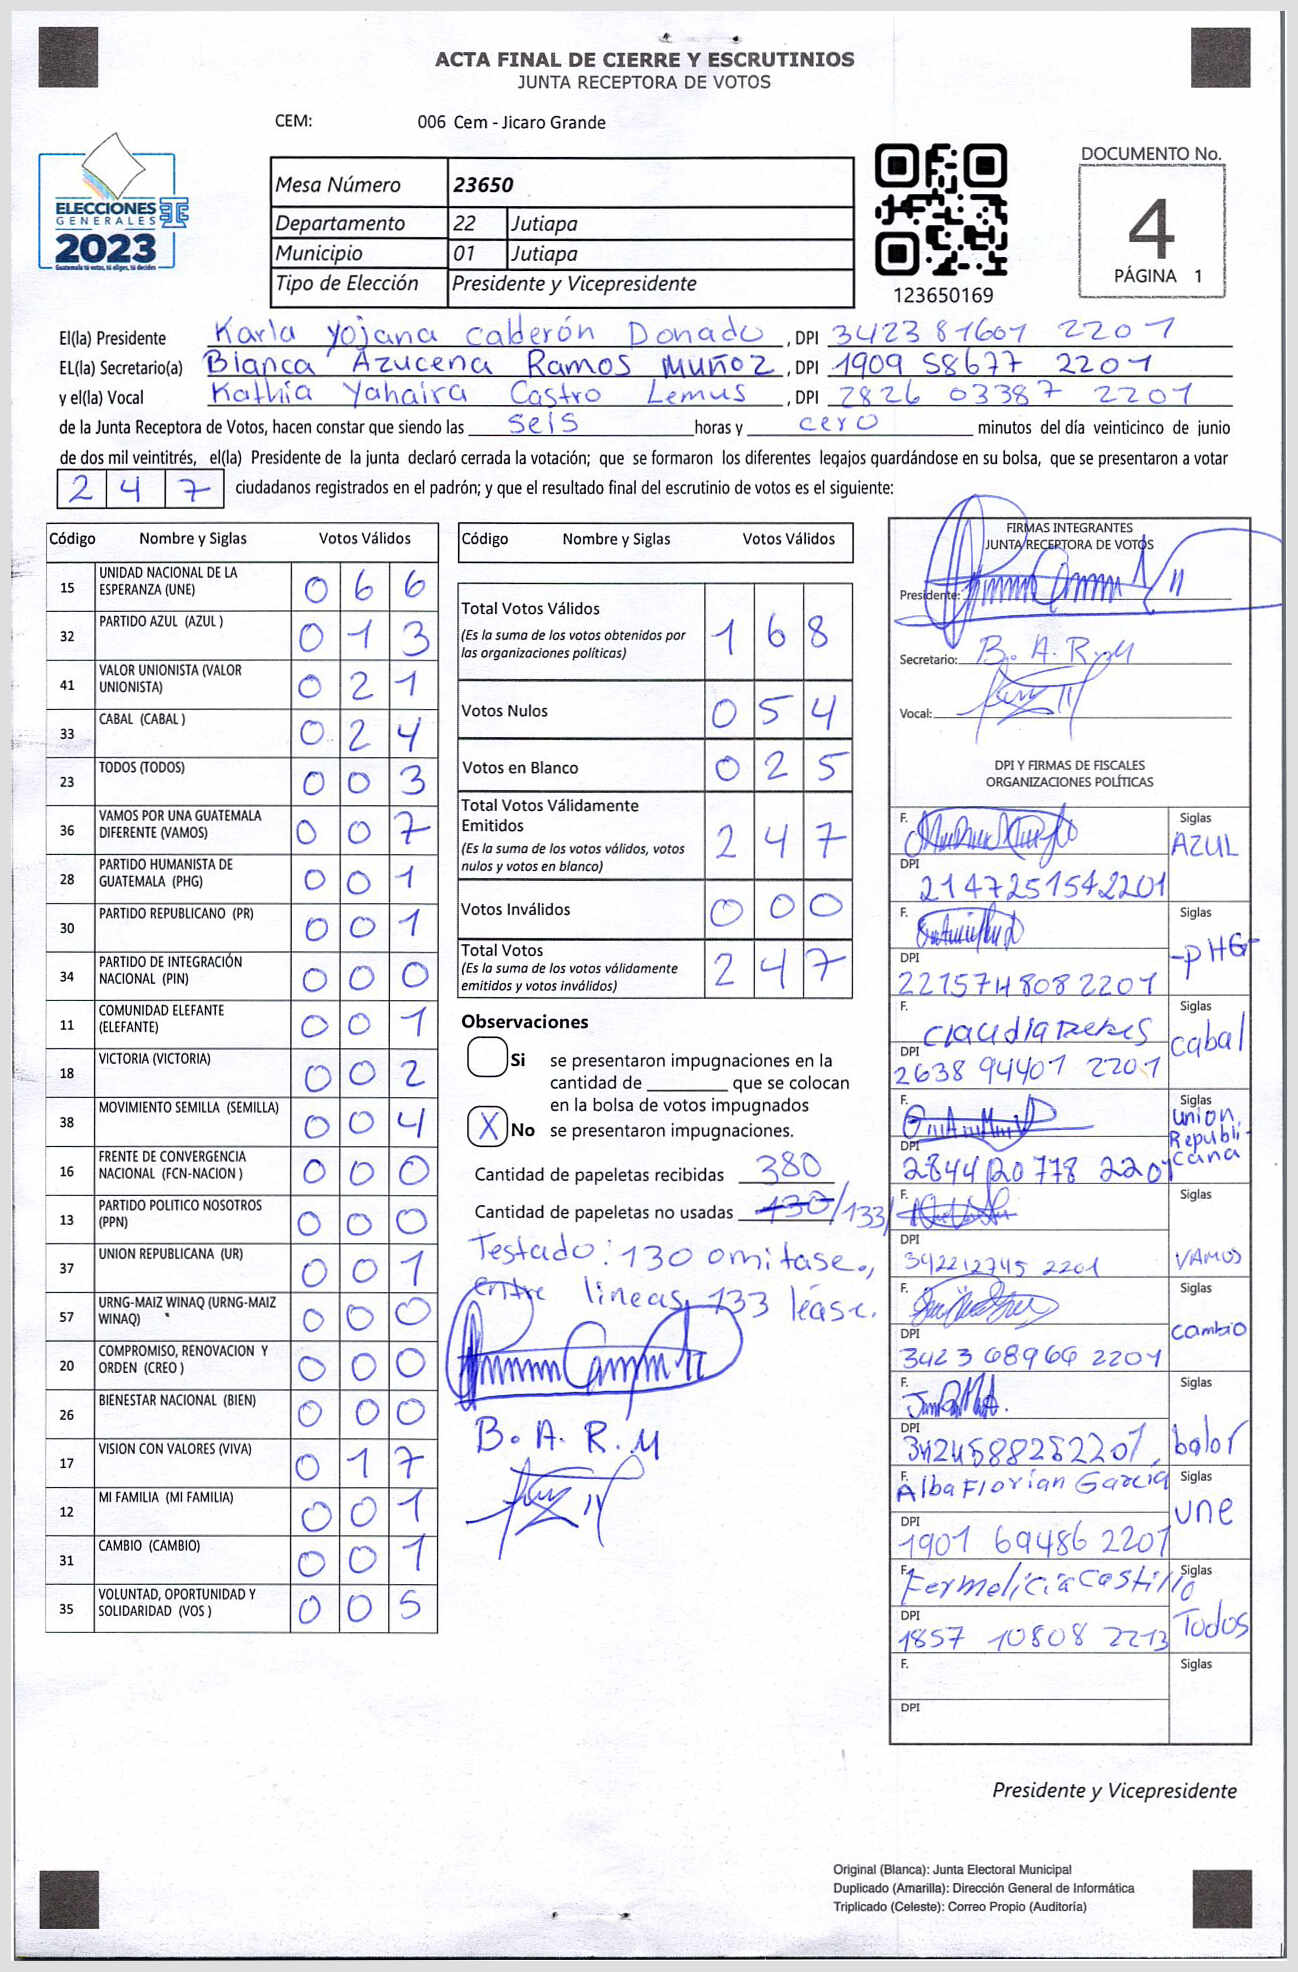 ACTA FINAL DE CIERRE Y ESCRUTINIOS
JUNTA RECEPTORA DE VOTOS
CEM: 006 Cem - Jicaro Grande
ELECCIONES
GENERALES
2023
Guatemala tú votas, tú eliges, tú decides
Mesa Número 23650
Departamento 22 Jutiapa
Municipio 01 Jutiapa
Tipo de Elección Presidente y Vicepresidente
123650169
DOCUMENTO No.
4
PÁGINA 1
El(la) Presidente Karla Yojana Calderón Donado, DPI 3423 81601 2201
EL(la) Secretario(a) Blanca Azucena Ramos Muñoz, DPI 1909 58677 2201
y el(la) Vocal Kathia Yahaira Castro Lemus, DPI 2826 03387 2201
de la Junta Receptora de Votos, hacen constar que siendo las seis horas y cero minutos del día veinticinco de junio
de dos mil veintitrés, el(la) Presidente de la junta declaró cerrada la votación; que se formaron los diferentes legajos guardándose en su bolsa, que se presentaron a votar
2 4 7 ciudadanos registrados en el padrón; y que el resultado final del escrutinio de votos es el siguiente:
Código Nombre y Siglas Votos Válidos
15 UNIDAD NACIONAL DE LA ESPERANZA (UNE) 0 6 6
32 PARTIDO AZUL (AZUL ) 0 1 3
41 VALOR UNIONISTA (VALOR UNIONISTA) 0 2 1
33 CABAL (CABAL ) 0 2 4
23 TODOS (TODOS) 0 0 3
36 VAMOS POR UNA GUATEMALA DIFERENTE (VAMOS) 0 0 7
28 PARTIDO HUMANISTA DE GUATEMALA (PHG) 0 0 1
30 PARTIDO REPUBLICANO (PR) 0 0 1
34 PARTIDO DE INTEGRACIÓN NACIONAL (PIN) 0 0 0
11 COMUNIDAD ELEFANTE (ELEFANTE) 0 0 1
18 VICTORIA (VICTORIA) 0 0 2
38 MOVIMIENTO SEMILLA (SEMILLA) 0 0 4
16 FRENTE DE CONVERGENCIA NACIONAL (FCN-NACION ) 0 0 0
13 PARTIDO POLITICO NOSOTROS (PPN) 0 0 0
37 UNION REPUBLICANA (UR) 0 0 1
57 URNG-MAIZ WINAQ (URNG-MAIZ WINAQ) 0 0 0
20 COMPROMISO, RENOVACION Y ORDEN (CREO ) 0 0 0
26 BIENESTAR NACIONAL (BIEN) 0 0 0
17 VISION CON VALORES (VIVA) 0 1 7
12 MI FAMILIA (MI FAMILIA) 0 0 1
31 CAMBIO (CAMBIO) 0 0 1
35 VOLUNTAD, OPORTUNIDAD Y SOLIDARIDAD (VOS ) 0 0 5
Código Nombre y Siglas Votos Válidos
Total Votos Válidos 1 6 8
(Es la suma de los votos obtenidos por las organizaciones políticas)
Votos Nulos 0 5 4
Votos en Blanco 0 2 5
Total Votos Válidamente Emitidos 2 4 7
(Es la suma de los votos válidos, votos nulos y votos en blanco)
Votos Inválidos 0 0 0
Total Votos 2 4 7
(Es la suma de los votos válidamente emitidos y votos inválidos)
Observaciones
Si se presentaron impugnaciones en la
cantidad de ________ que se colocan
en la bolsa de votos impugnados
X No se presentaron impugnaciones.
Cantidad de papeletas recibidas 380
Cantidad de papeletas no usadas 130/133/
Testado: 130 omitase.,
entre lineas, 133 léase.
B. A. R. M
FIRMAS INTEGRANTES
JUNTA RECEPTORA DE VOTOS
Presidente:
Secretario: B. A. R. M
Vocal:
DPI Y FIRMAS DE FISCALES
ORGANIZACIONES POLÍTICAS
F. Siglas AZUL
DPI 2147251542201
F. Siglas -PHG-
DPI 2215 74808 2201
F. Claudia Siglas cabal
DPI 2638 94401 2201
F. Siglas Union Republi-cana
DPI 2844 20778 2201
F. Siglas VAMOS
DPI 342212745 2201
F. Siglas cambio
DPI 3423 68966 2201
F. Siglas balor
DPI 3424588252201
F. Alba Florian García Siglas une
DPI 1901 69486 2201
F. Fermelicia Castillo Siglas Todos
DPI 1857 10808 2213
F. Siglas
DPI
Presidente y Vicepresidente
Original (Blanca): Junta Electoral Municipal
Duplicado (Amarilla): Dirección General de Informática
Triplicado (Celeste): Correo Propio (Auditoría)